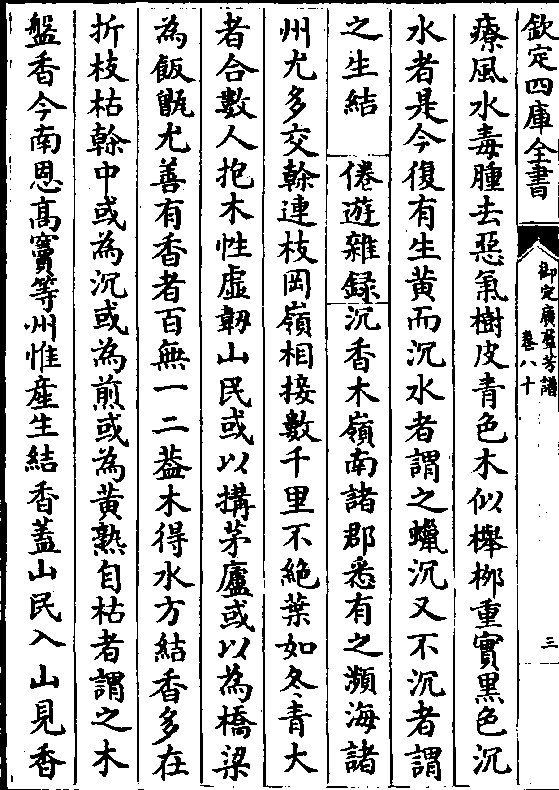 欽定四庫全書
御定廣羣芳譜
卷八十
三
療風水毒腫去惡氣樹皮青色木似櫸栁重實黑色沉
水者是今復有生黃而沉水者謂之蠟沉又不沉者謂
之生結　倦遊雜録沉香木嶺南諸郡悉有之瀕海諸
州尤多交榦連枝岡嶺相接數千里不絶葉如冬青大
者合數人抱木性虛韌山民或以搆茅廬或以為橋梁
為飯甑尤善有香者百無一二葢木得水方結香多在
折枝枯榦中或為沉或為煎或為黃熟自枯者謂之水
盤香今南恩髙竇等州惟產生結香蓋山民入山見香